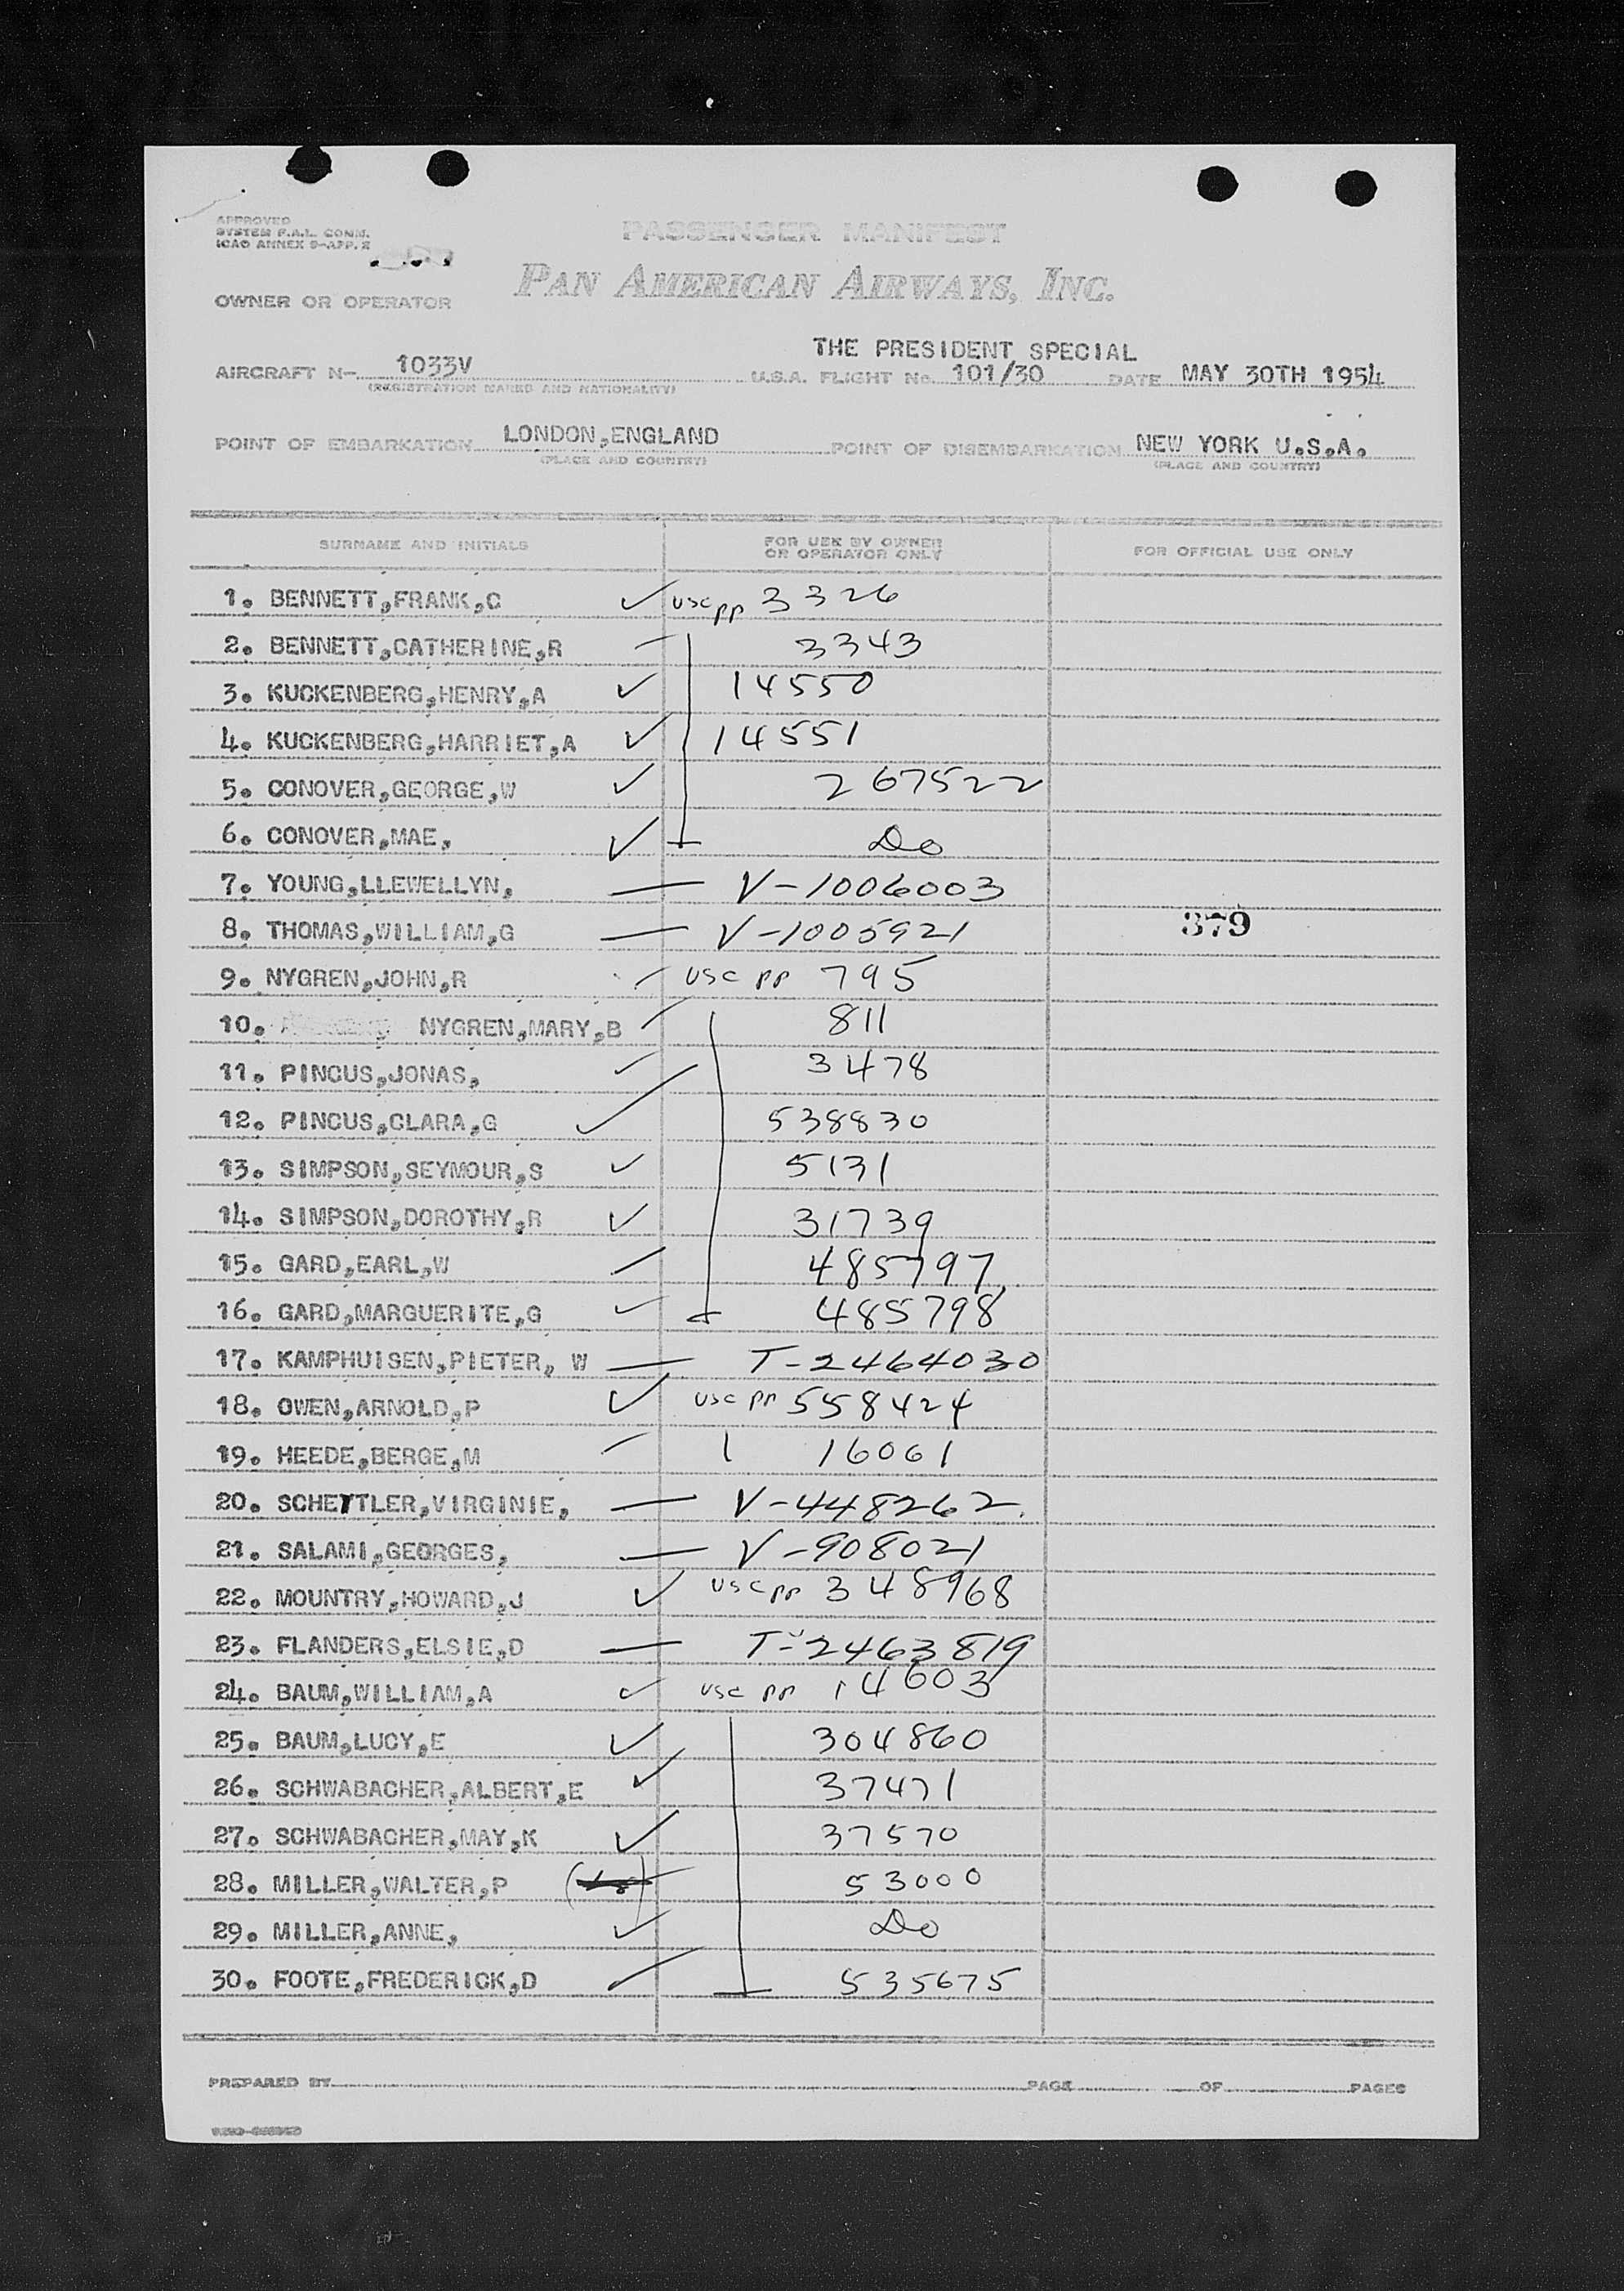 APPROVED
SYSTEM F.A.L. COMM.
ICAO ANNEX 9-APP. 2
PASSENGER MANIFEST
PAN AMERICAN AIRWAYS, INC.
OWNER OR OPERATOR
THE PRESIDENT SPECIAL
AIRCRAFT N- 1033V U.S.A. FLIGHT No. 101/30 DATE MAY 30TH 1954
(REGISTRATION MARKS AND NATIONALITY)
POINT OF EMBARKATION LONDON,ENGLAND POINT OF DISEMBARKATION NEW YORK U.S.A.
(PLACE AND COUNTRY) (PLACE AND COUNTRY)
SURNAME AND INITIALS FOR USE BY OWNER OR OPERATOR ONLY FOR OFFICIAL USE ONLY
1. BENNETT,FRANK,C usc pp 3326
2. BENNETT,CATHERINE,R 3343
3. KUCKENBERG,HENRY,A 14550
4. KUCKENBERG,HARRIET,A 14551
5. CONOVER,GEORGE,W 267522
6. CONOVER,MAE, Do
7. YOUNG,LLEWELLYN, V-1006003
8. THOMAS,WILLIAM,G V-1005921 379
9. NYGREN,JOHN,R usc pp 795
10. NYGREN,MARY,B 811
11. PINCUS,JONAS, 3478
12. PINCUS,CLARA,G 538830
13. SIMPSON,SEYMOUR,S 5131
14. SIMPSON,DOROTHY,R 31739
15. GARD,EARL,W 485797
16. GARD,MARGUERITE,G 485798
17. KAMPHUISEN,PIETER, W T-2464030
18. OWEN,ARNOLD,P usc pp 558424
19. HEEDE,BERGE,M 16061
20. SCHETTLER,VIRGINIE, V-448262.
21. SALAMI,GEORGES, V-908021
22. MOUNTRY,HOWARD,J usc pp 348968
23. FLANDERS,ELSIE,D T-2463819
24. BAUM,WILLIAM,A usc pp 14603
25. BAUM,LUCY,E 304860
26. SCHWABACHER,ALBERT,E 37471
27. SCHWABACHER,MAY,K 37570
28. MILLER,WALTER,P 53000
29. MILLER,ANNE, Do
30. FOOTE,FREDERICK,D 535675
PREPARED BY PAGE OF PAGES